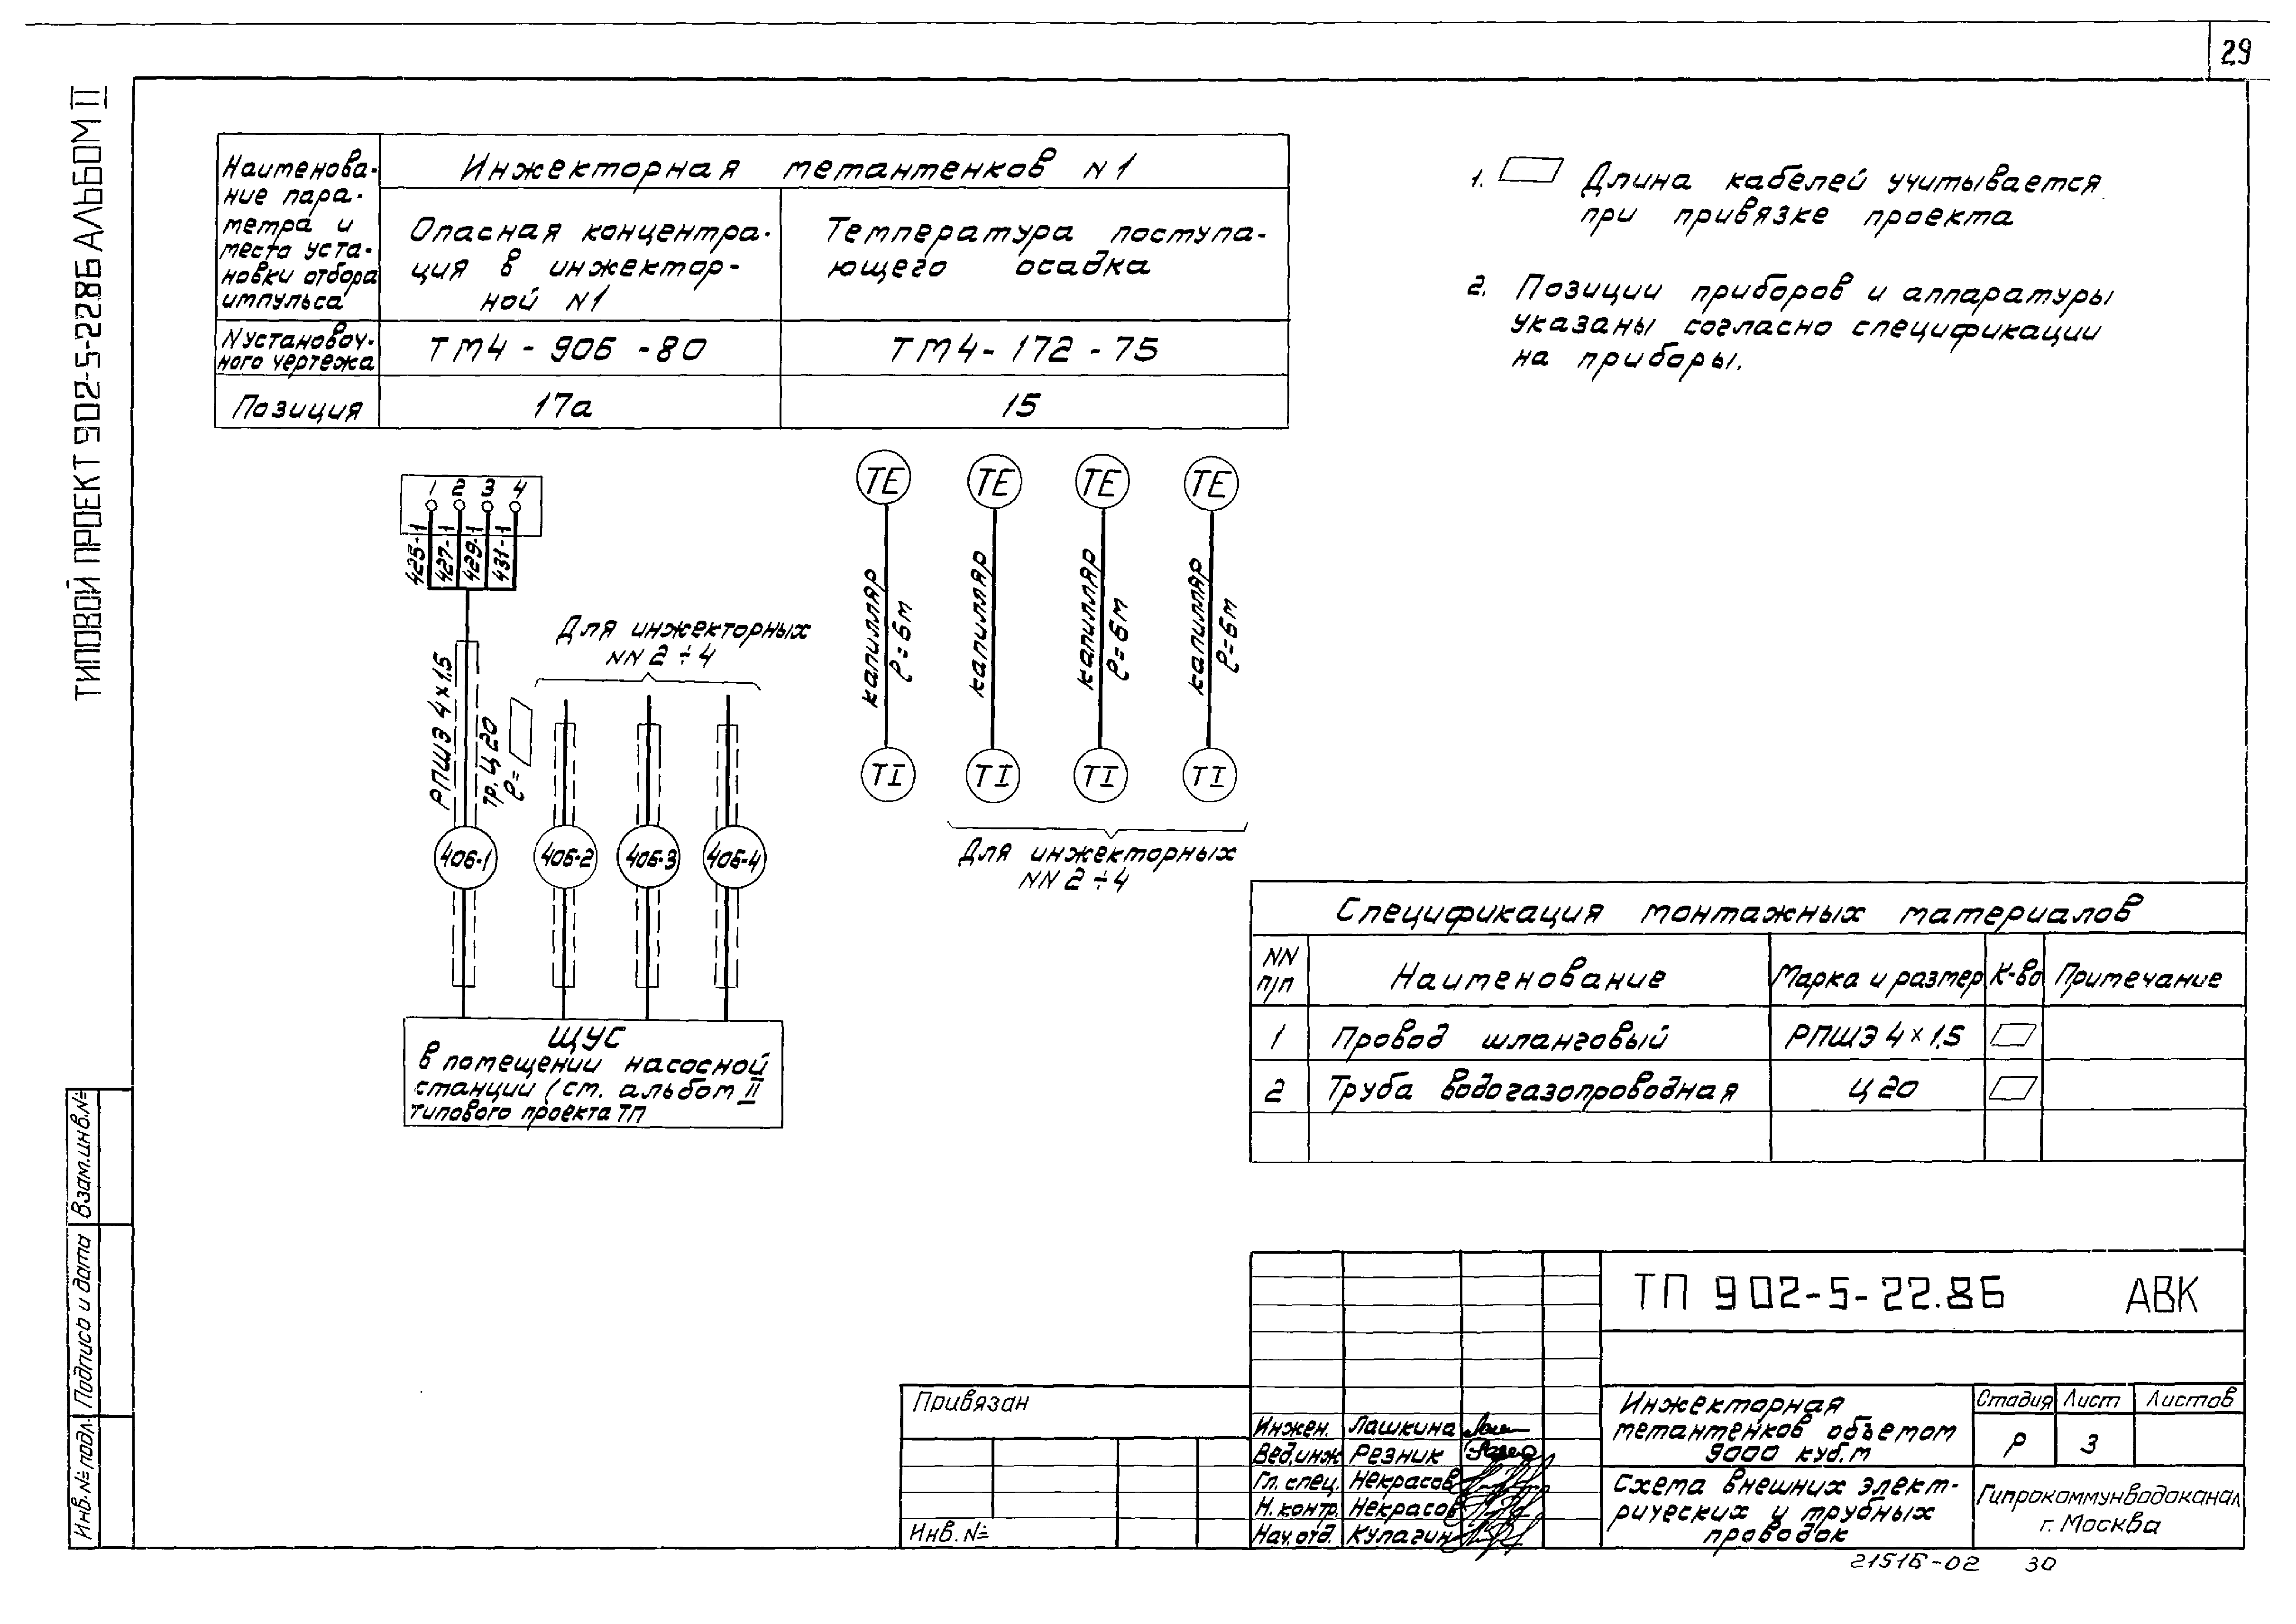 29
ТИПОВОЙ ПРОЕКТ 902-5-22.86 АЛЬБОМ II
Наименова-
ние пара-
метра и
место уста-
новки отбора
импульса
Инжекторная метантенков N1
Опасная концентра-
ция в инжектор-
ной N1
Температура поступа-
ющего осадка
N установоч-
ного чертежа
ТМ4-906-80
ТМ4-172-75
Позиция
17а
15
1. Длина кабелей учитывается
при привязке проекта
2. Позиции приборов и аппаратуры
указаны согласно спецификации
на приборы.
1 2 3 4
425-1
427-1
429-1
431-1
РПШЭ 4×1,5
тр. Ц 20
ℓ=
Для инжекторных
NN 2÷4
406-1
406-2
406-3
406-4
ЩУС
в помещении насосной
станции (см. альбом II
типового проекта ТП
TE
TE
TE
TE
капилляр
ℓ=6м
капилляр
капилляр
ℓ=6м
капилляр
ℓ=6м
TI
TI
TI
TI
Для инжекторных
NN 2÷4
Спецификация монтажных материалов
NN
п/п
Наименование
Марка и размер
К-во
Примечание
1 Провод шланговый РПШЭ 4×1,5
2 Труба водогазопроводная Ц 20
ТП 902-5-22.86 АВК
Привязан
Инв. №
Инжен. Лашкина
Вед.инж Резник
Гл. спец. Некрасов
Н. контр. Некрасов
Нач. отд. Кулагин
Инжекторная
метантенков объемом
9000 куб.м
Стадия Лист Листов
Р 3
Схема внешних элект-
рических и трубных
проводок
Гипрокоммунводоканал
г. Москва
Взам.инв.№
Подпись и дата
Инв.№подл.
21516-02 30